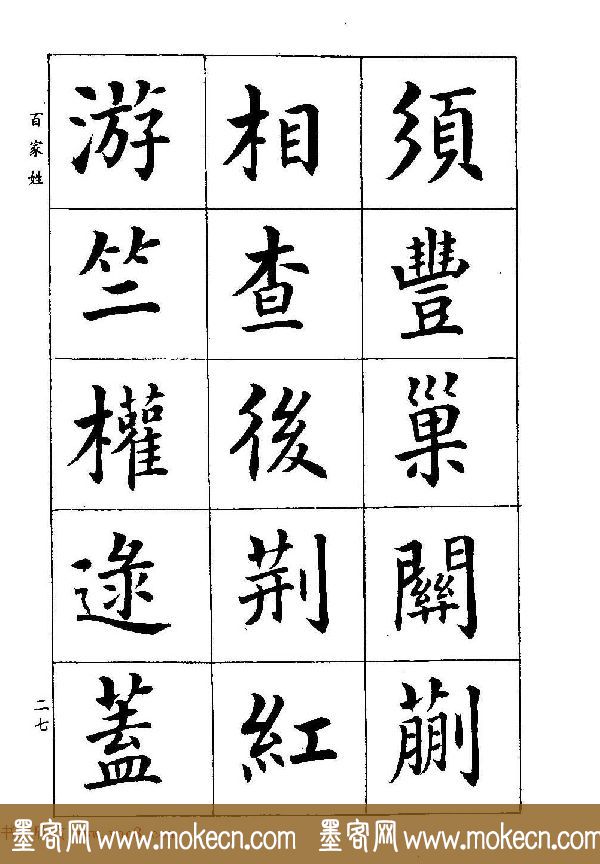 須豐巢關蒯
相查後荆紅
游竺權逯蓋
百家姓
二七
墨客网 www.mokecn.com 墨客网 www.mokecn.com